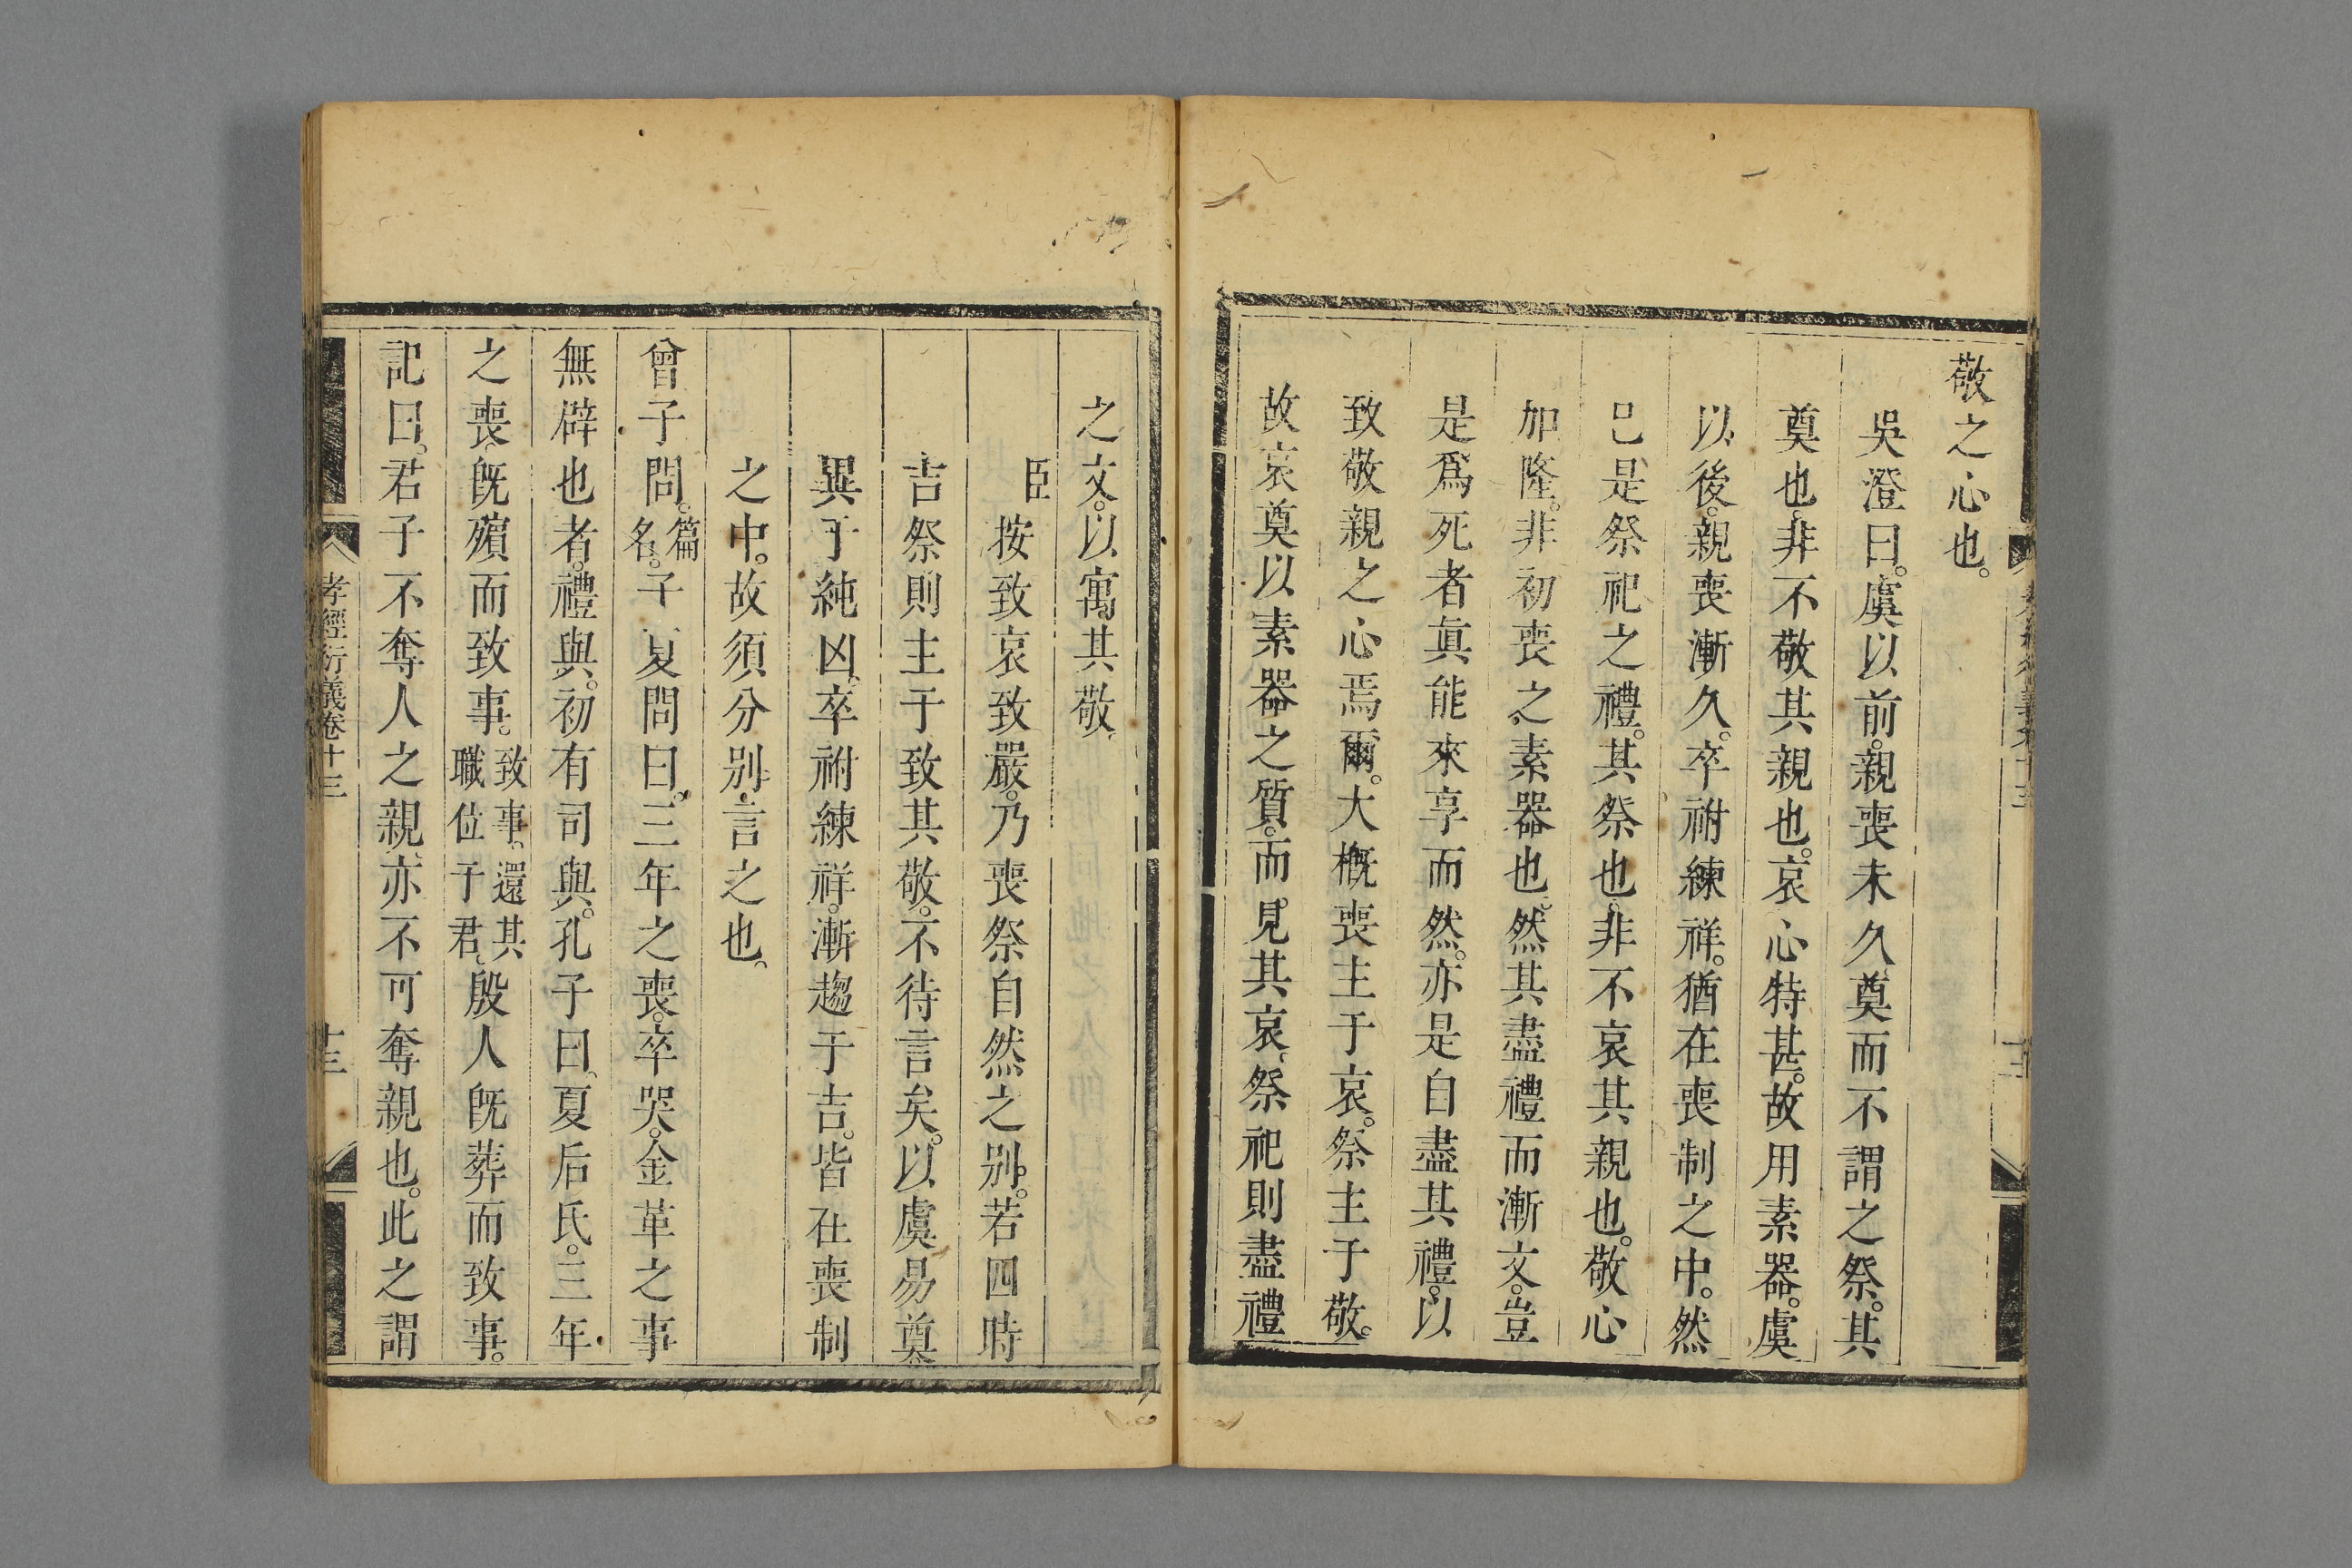 敬之心也。
吳澄曰。虞以前。親喪未久、奠而不謂之祭。其
奠也、非不敬其親也。哀心特甚。故用素器。虞
以後。親喪漸久。卒祔練祥。猶在喪制之中。然
已是祭祀之禮。其祭也、非不哀其親也。敬心
加隆。非初喪之素器也。然其盡禮而漸文。豈
是爲死者眞能來享而然。亦是自盡其禮。以
致敬親之心焉爾。大槪喪主于哀。祭主于敬。
故哀奠以素器之質。而見其哀、祭祀則盡禮
之文。以寓其敬、
臣按致哀致嚴。乃喪祭自然之别。若四時
吉祭則主于致其敬。不待言矣。以虞易奠
異于純凶、卒祔練祥。漸趨于吉。皆在喪制
之中。故須分别言之也。
曾子問。篇名。子夏問曰。三年之喪。卒哭。金革之事
無辟也者。禮與。初有司與。孔子曰、夏后氏。三年
之喪、旣殯而致事。致事、還其職位于君。殷人旣葬而致事。
記曰。君子不奪人之親、亦不可奪親也。此之謂
孝經衍義卷十三
十三